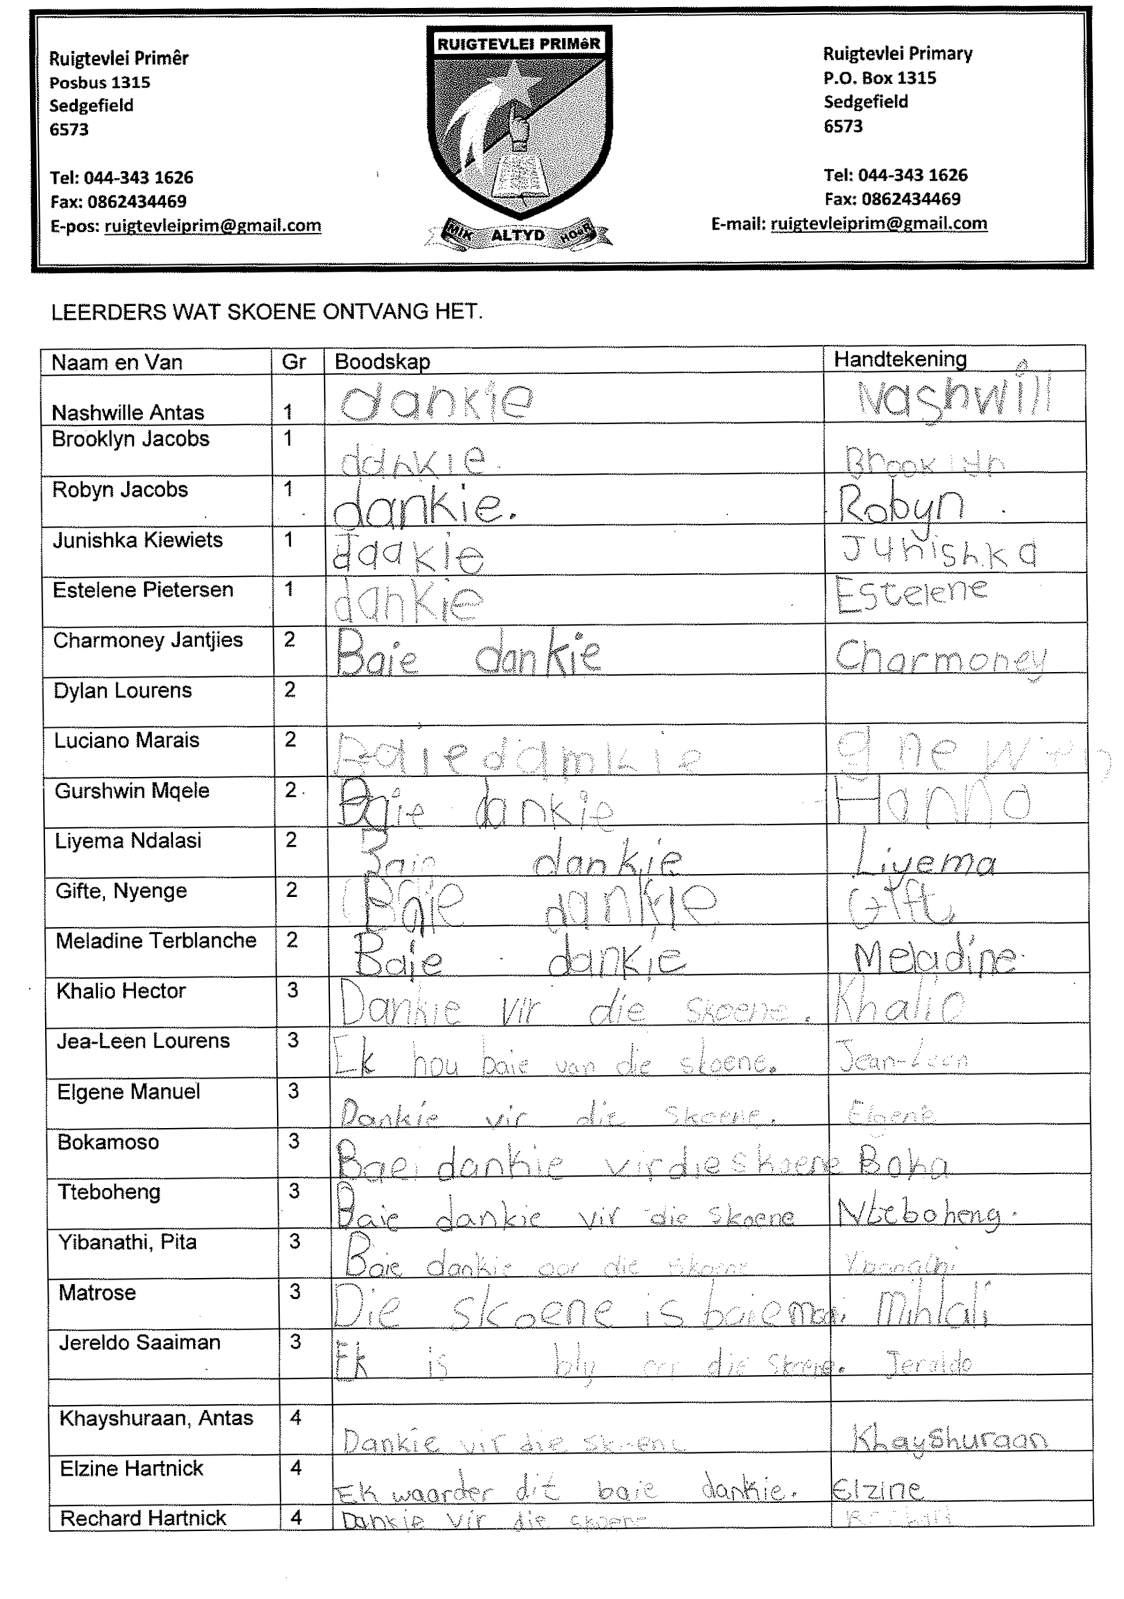 Ruigtevlei Primêr
Posbus 1315
Sedgefield
6573
Tel: 044-343 1626
Fax: 0862434469
E-pos: ruigtevleiprim@gmail.com
RUIGTEVLEI PRIMêR
MIK ALTYD HOëR
Ruigtevlei Primary
P.O. Box 1315
Sedgefield
6573
Tel: 044-343 1626
Fax: 0862434469
E-mail: ruigtevleiprim@gmail.com
LEERDERS WAT SKOENE ONTVANG HET.
Naam en Van Gr Boodskap Handtekening
Nashwille Antas 1 dankie Nashwill
Brooklyn Jacobs 1 dankie. Brooklyn
Robyn Jacobs 1 dankie. Robyn
Junishka Kiewiets 1 daakie Junishka
Estelene Pietersen 1 dankie Estelene
Charmoney Jantjies 2 Baie dankie Charmoney
Dylan Lourens 2
Luciano Marais 2 Baie damkie
Gurshwin Mqele 2 Baie dankie Hanno
Liyema Ndalasi 2 Baie dankie Liyema
Gifte, Nyenge 2 Baie dankie Gift
Meladine Terblanche 2 Baie dankie Meladine
Khalio Hector 3 Dankie vir die skoene. Khalio
Jea-Leen Lourens 3 Ek hou baie van die skoene. Jean-Leen
Elgene Manuel 3 Dankie vir die skoene. Elgene
Bokamoso 3 Baei dankie vir die skoene Boka
Tteboheng 3 Baie dankie vir die skoene Nteboheng.
Yibanathi, Pita 3 Baie dankie oor die skoene Yibanathi
Matrose 3 Die skoene is baie mooi Mihlali
Jereldo Saaiman 3 Ek is bly oor die skoene. Jeraldo
Khayshuraan, Antas 4 Dankie vir die skoene Khayshuraan
Elzine Hartnick 4 Ek waarder dit baie dankie. Elzine
Rechard Hartnick 4 Dankie vir die skoene